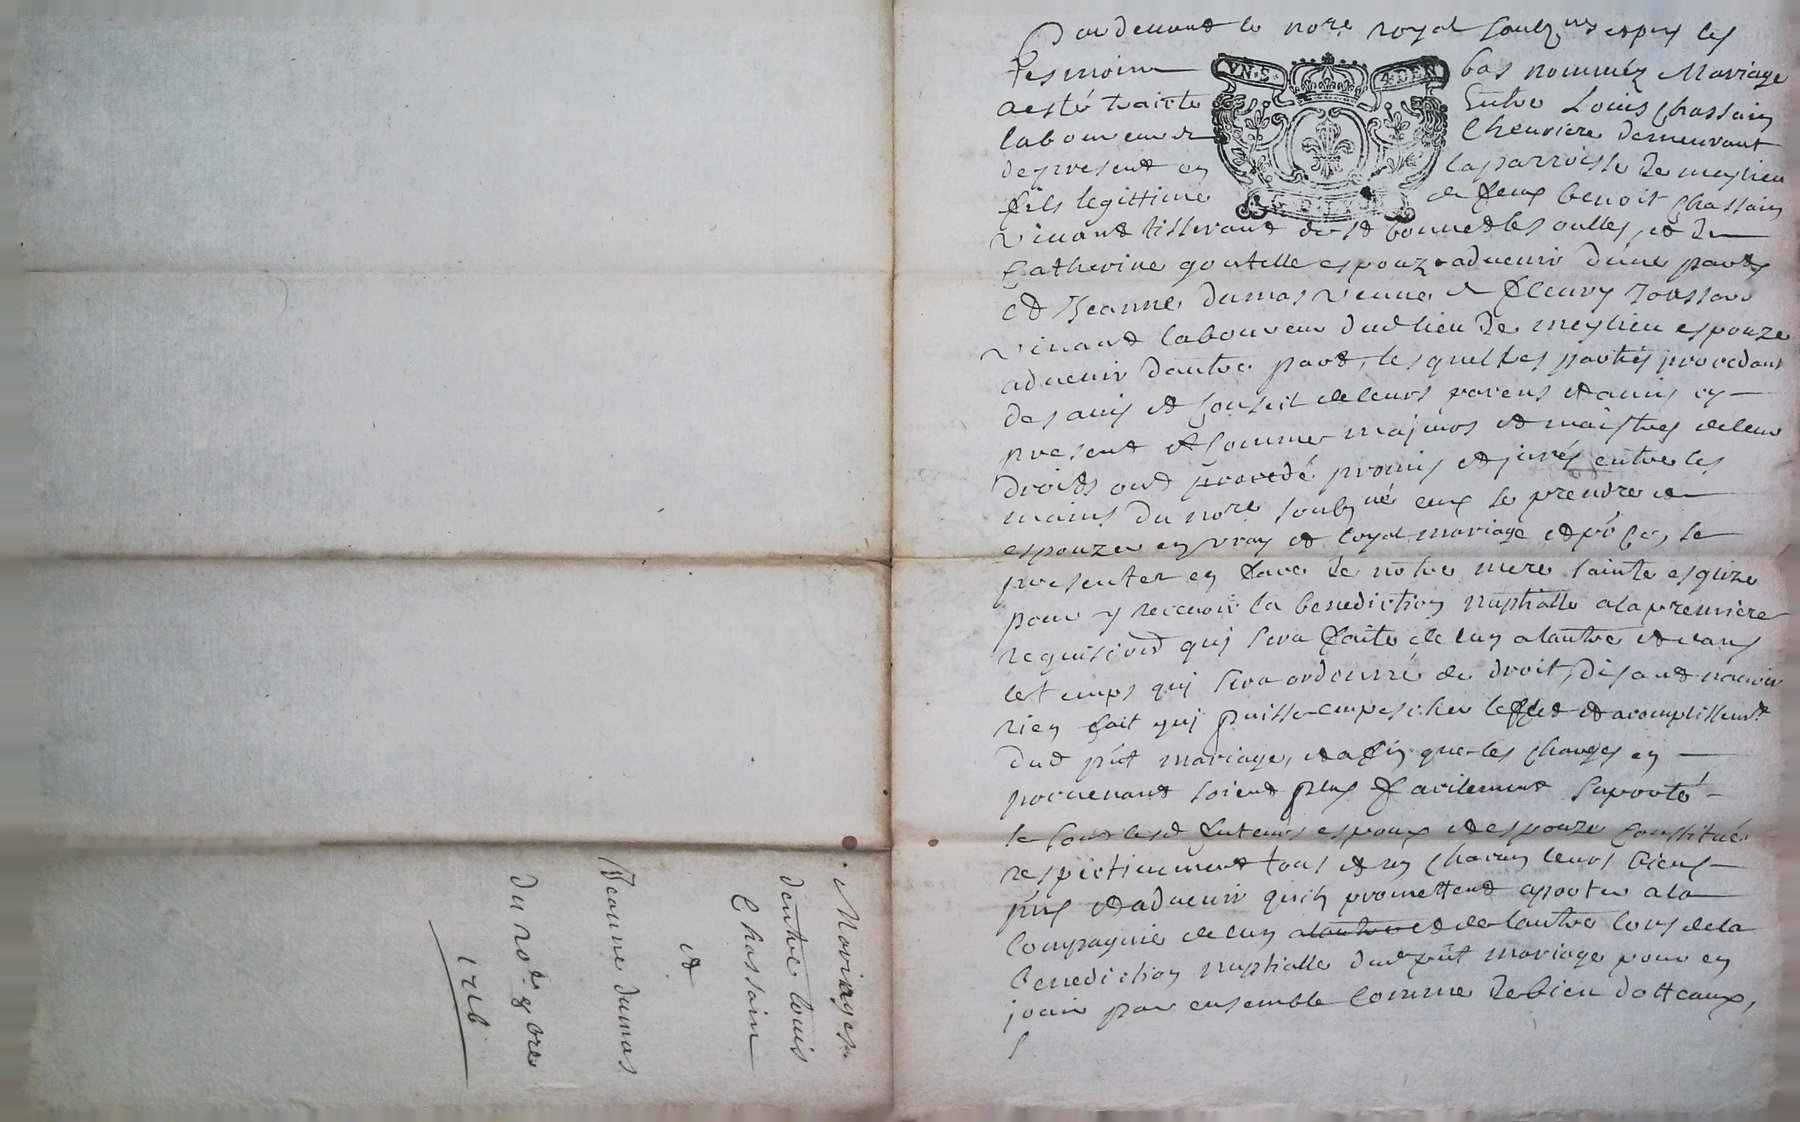 Pardevant le nore royal soubzné et pnt les
tesmoins bas nommez Mariage
a esté traicté Entre Louis Chassain
laboureur de Cheuriere demeurant
de present en la parroisse de meylieu
fils legittime de feux benoit Chassain
vivant tisserant de st bonnet les oulles, et de
Catherine goutelle espoux aduenir d'une part
et Jeanne dumas veuue de fleury
vivant laboureur dud lieu de meylieu espouze
aduenir d'autre part, lesquelles parties procedant
des auis et Conseil de leurs parens et amis cy
present et Comme majeurs et maistres de leur
droits ont procedé promis et jurés entre les
mains du nore soubzné eux se prendre et
espouzer en vray et loyal mariage et pr Ce, se
presenter en face de notre mere sainte esglize
pour y receuoir la benediction nuptialle a la premiere
requision quj sera faite de l'un a l'autre et dans
le temps quj sera ordonné de droit, disant n'auoir
rien fait quj puisse empescher leffet et acomplissemt
dud pnt mariage, et affin que les charges en
prouenant soient plus facilement suporté
se sont lesd futeurs espoux et espouze Constitué
respectiuement tous et un chacun leurs biens
pns et aduenir qu'ils promettent aporter a la
Compagnie de l'un a lautre et de lautre lors de la
Benediction nuptialle dud pnt mariage pour en
jouir par ensemble Comme de bien dottaux,
Mariages
dentre louis
Chassain
et
Jeanne dumas
du 8bre